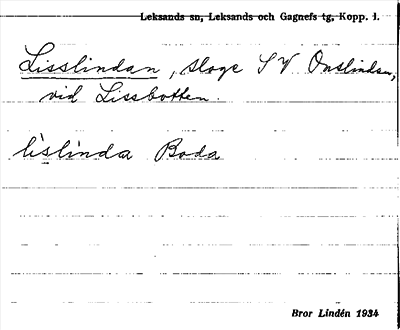 Leksands sn, Leksands och Gagnefs tg, Kopp. l.
Lisslindan, sloge SV Onslindan,
vid Lissbotten.
lislinda Boda
Bror Lindén 1934